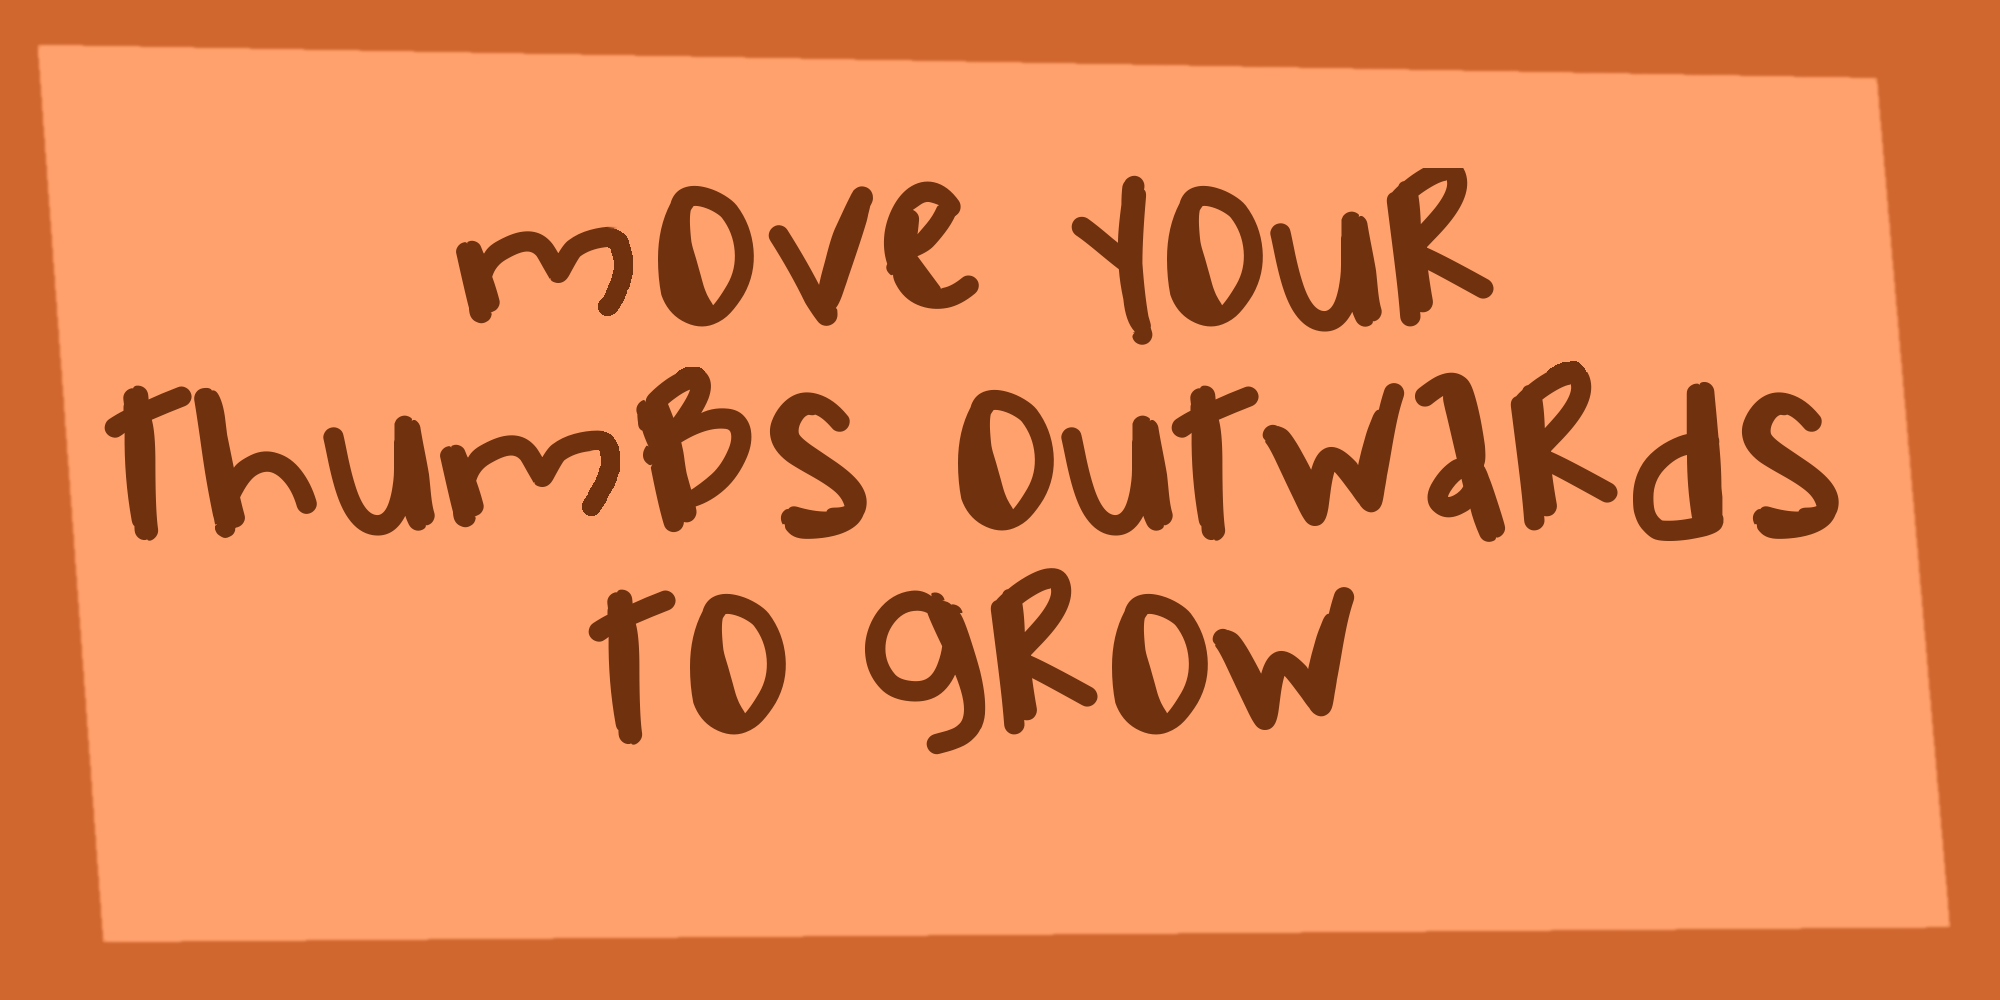 move your
thumbs outwards
to grow